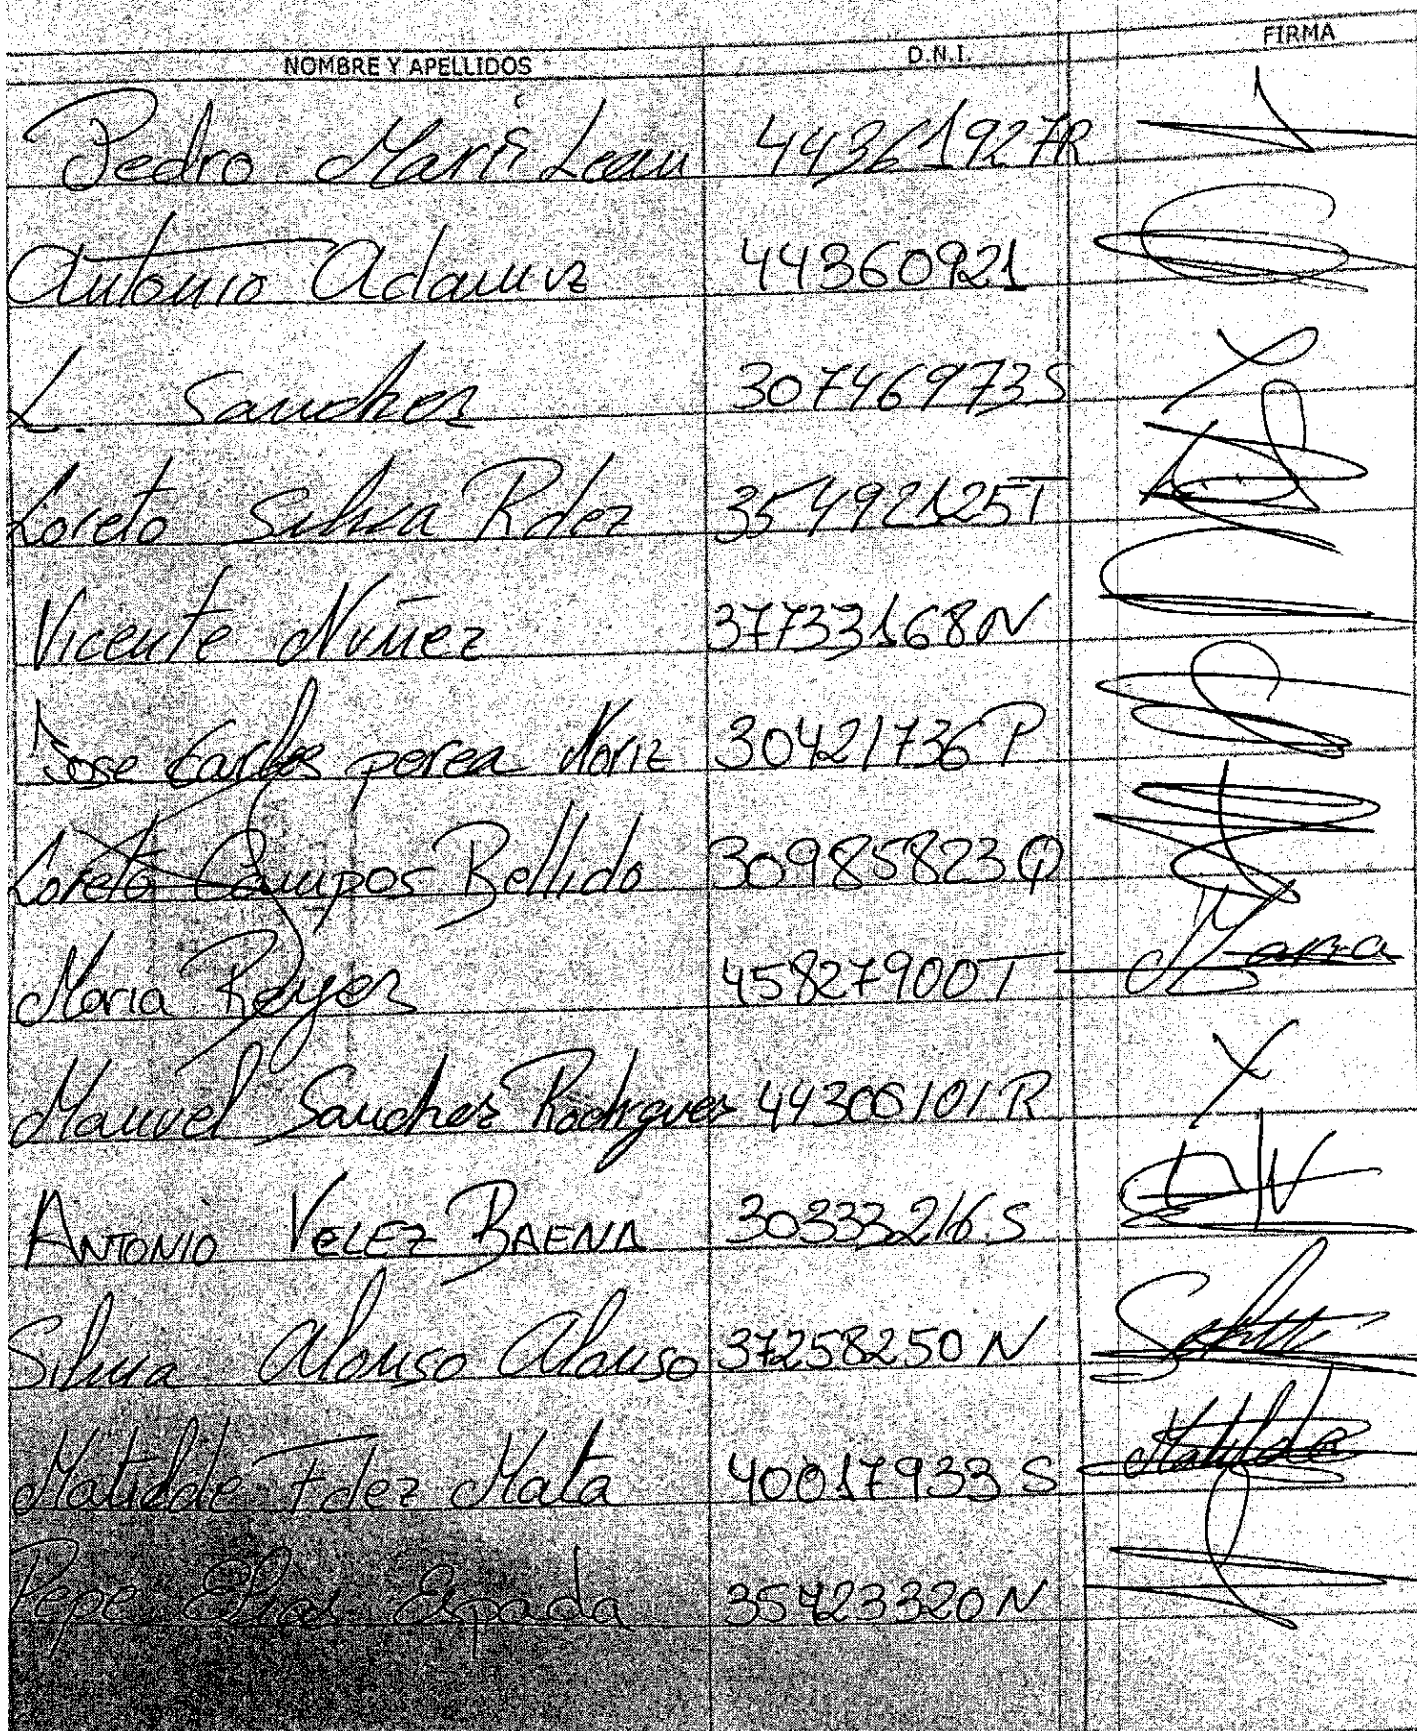 NOMBRE Y APELLIDOS D.N.I. FIRMA
Pedro Marti Leau 44361927R
Antonio Adamuz 44360921
L. Sanchez 30746973S
Loreto Silva Rdez 35492125T
Vicente Núñez 37733168N
Jose Carlos perea Moriz 30421736P
Loreto Campos Bellido 30985823Q
Maria Reyes 45827900T Maria
Manuel Sanchez Rodriguez 44306101R
ANTONIO VELEZ BAENA 30333216S
Silvia Alonso Alonso 37258250N
Matilde Fdez Mata 40017933S Matilde
Pepe Elias Espada 35423320N